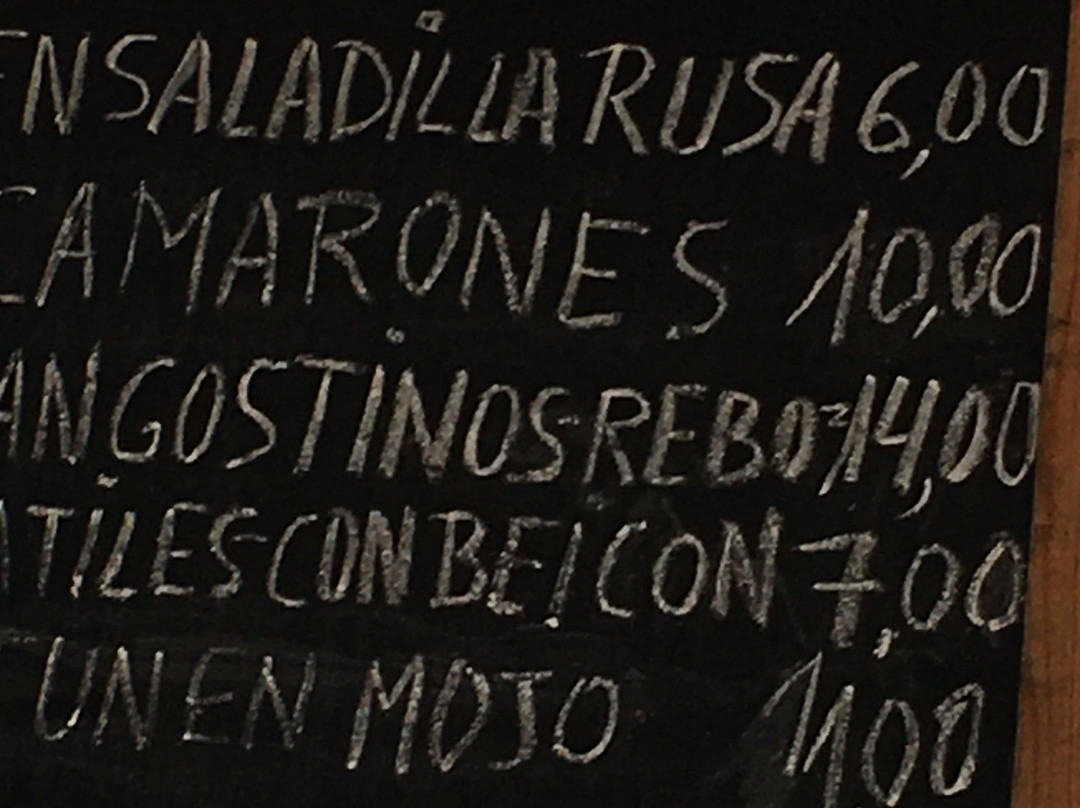 ENSALADILLA RUSA 6,00
CAMARONES 10,00
ANGOSTINOS REBOZ 14,00
ATILES CON BEICON 7,00
UN EN MOJO 11,00